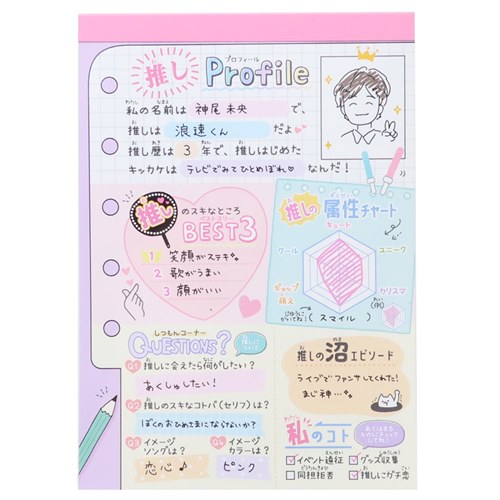 プロフィール
推し Profile
わたし なまえ
私の名前は 神尾 未央 で、
推しは 浪速くん だよ
推し暦は 3 年で、推しはじめた
キッカケは テレビでみてひとめぼれ♡ なんだ!
推しのスキなところ
BEST3
1 笑顔がステキ
2 歌がうまい
3 顔がいい
推しの属性チャート
キュート
クール
ユニーク
ギャップ萌え
カリスマ
(スマイル)
しつもんコーナー
QUESTIONS?
Q1 推しに会えたら何がしたい?
あくしゅしたい!
Q2 推しのスキなコトバ(セリフ)は?
ぼくのおひめさまにならないか?
Q3 イメージソングは?
恋心♪
Q4 イメージカラーは?
ピンク
推しの沼エピソード
ライブでファンサしてくれた!
まじ神…
私のコト
あてはまるものにチェックしてね!
イベント遠征
グッズ収集
同担拒否
推しにガチ恋